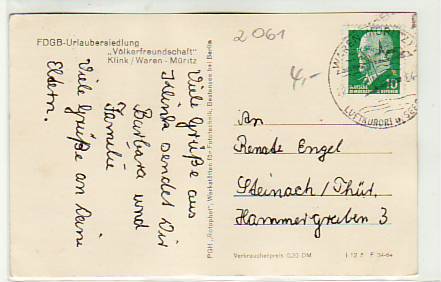 FDGB-Urlaubersiedlung
„Völkerfreundschaft“
Klink/Waren - Müritz
Viele Grüße aus
Klink sendet Dir
Barbara und
Familie
Viele Grüße an Deine
Eltern.
PGH „Rotophot“, Werkstätten für Fototechnik, Bestensee bei Berlin
2061
4,-
10
LUFTKURORT
An
Renate Engel
Steinach/Thür.
Hammergraben 3
Verbraucherpreis 0,20 DM